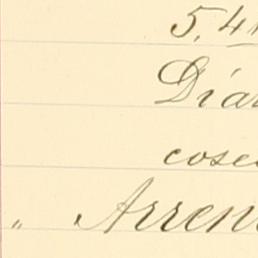 5.4
Diar
cose
" Arren